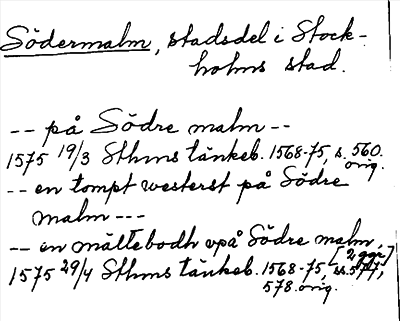 Södermalm, stadsdel i Stock-
holms stad.
-- på Södre malm --
1575 19/3 Sthms tänkeb. 1568-75, s. 560.
orig.
-- en tompt westerst på Södre
malm ---
-- en mältebodh vpå Södre malm,
[2 ggr]
1575 29/4 Sthms tänkeb. 1568-75, ss. 577,
578. orig.